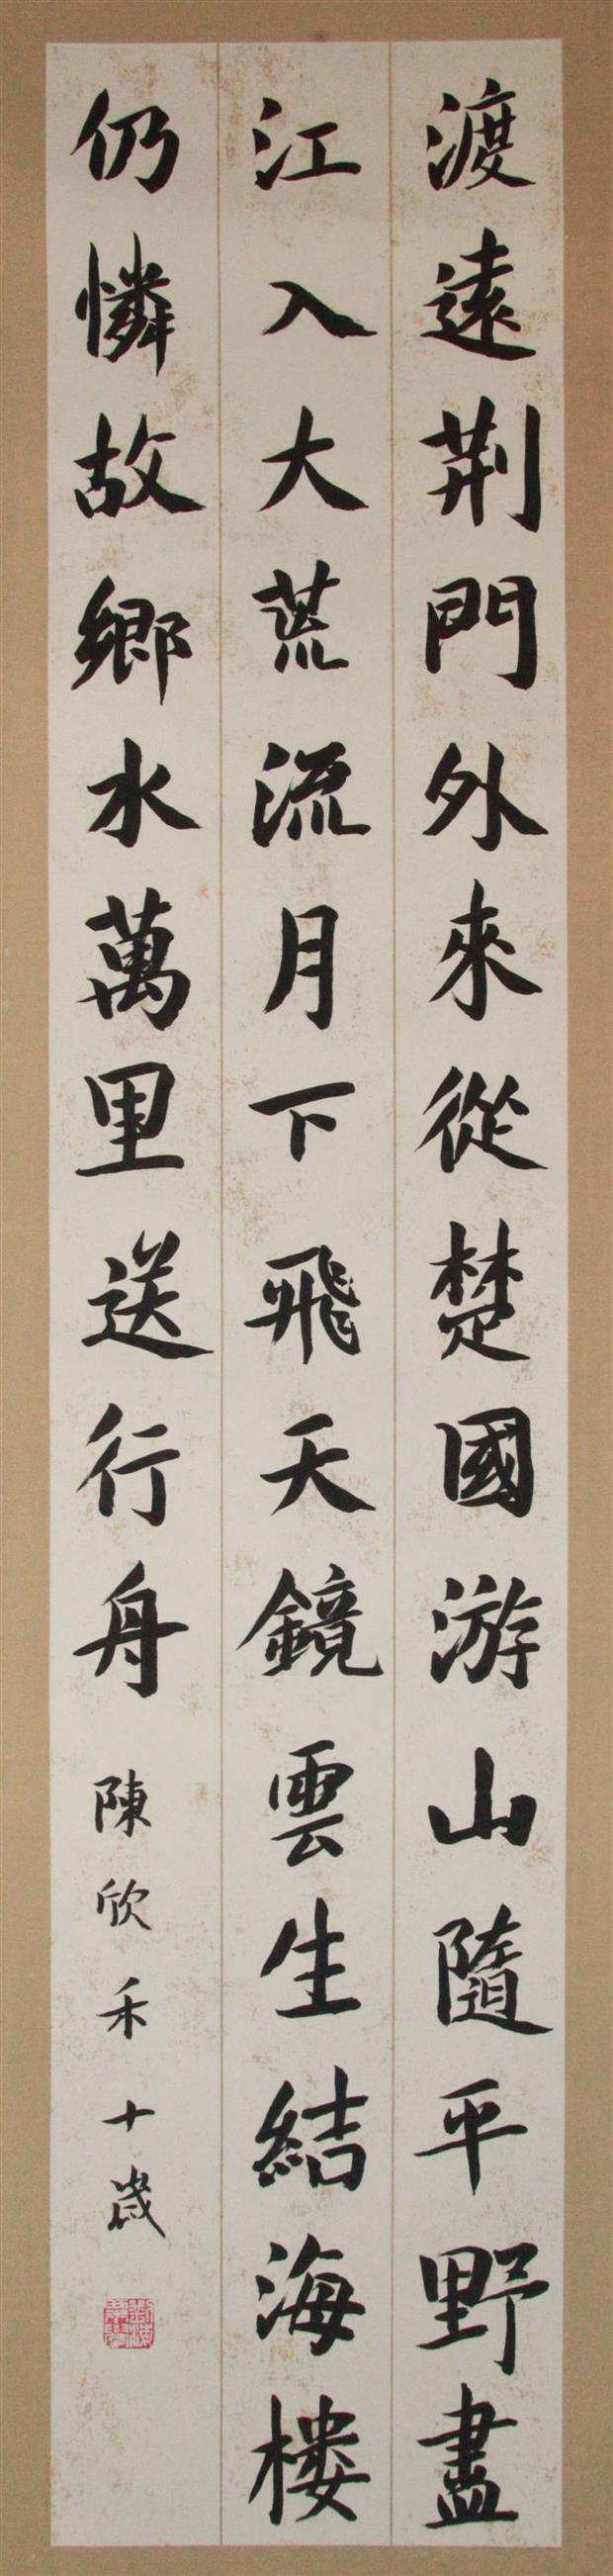 渡遠荆門外來從楚國游山隨平野盡
江入大荒流月下飛天鏡雲生結海樓
仍憐故鄉水萬里送行舟 陳欣禾十歲